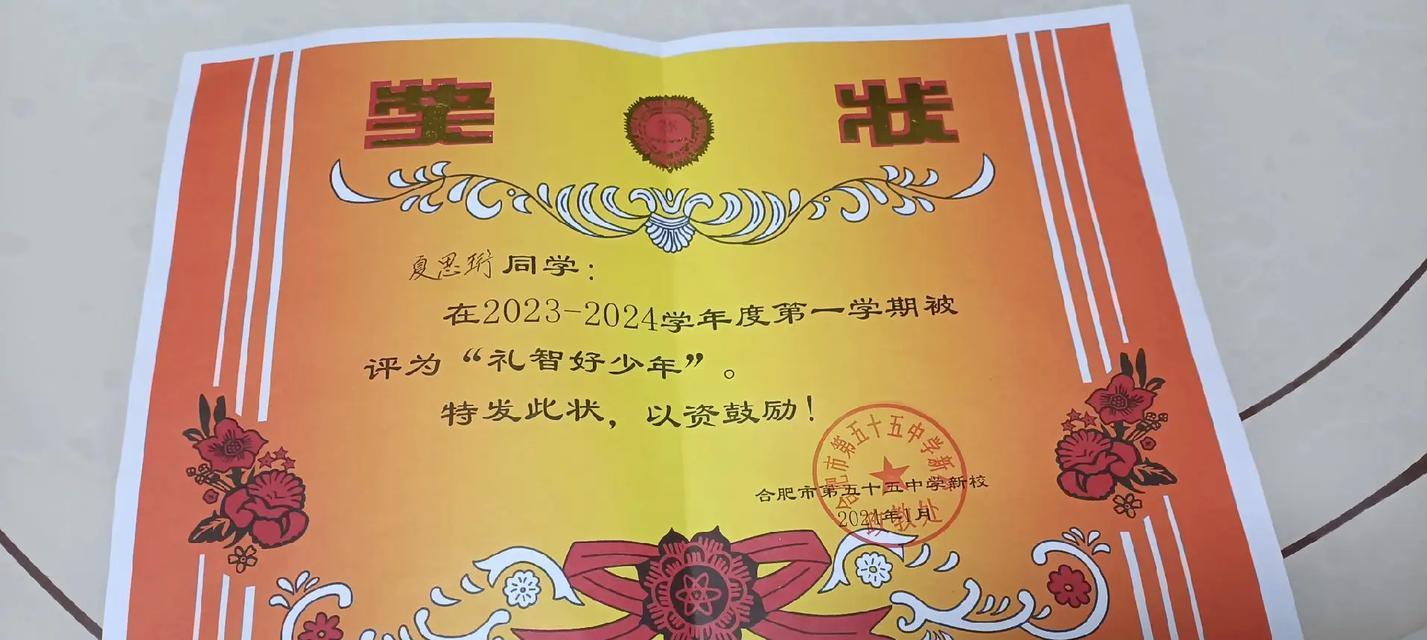 奖状
夏思珩同学：
在2023-2024学年度第一学期被
评为“礼智好少年”。
特发此状，以资鼓励！
合肥市第五十五中学新校
2024年1月
合肥市第五十五中学新校
政教处